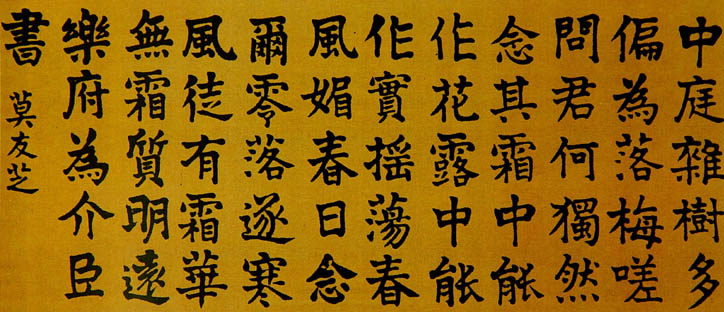 中庭雜樹多
偏為落梅嗟
問君何獨然
念其霜中能
作花露中能
作實摇蕩春
風媚春日念
爾零落逐寒
風徒有霜華
無霜質明遠
樂府為介臣
書
莫友芝